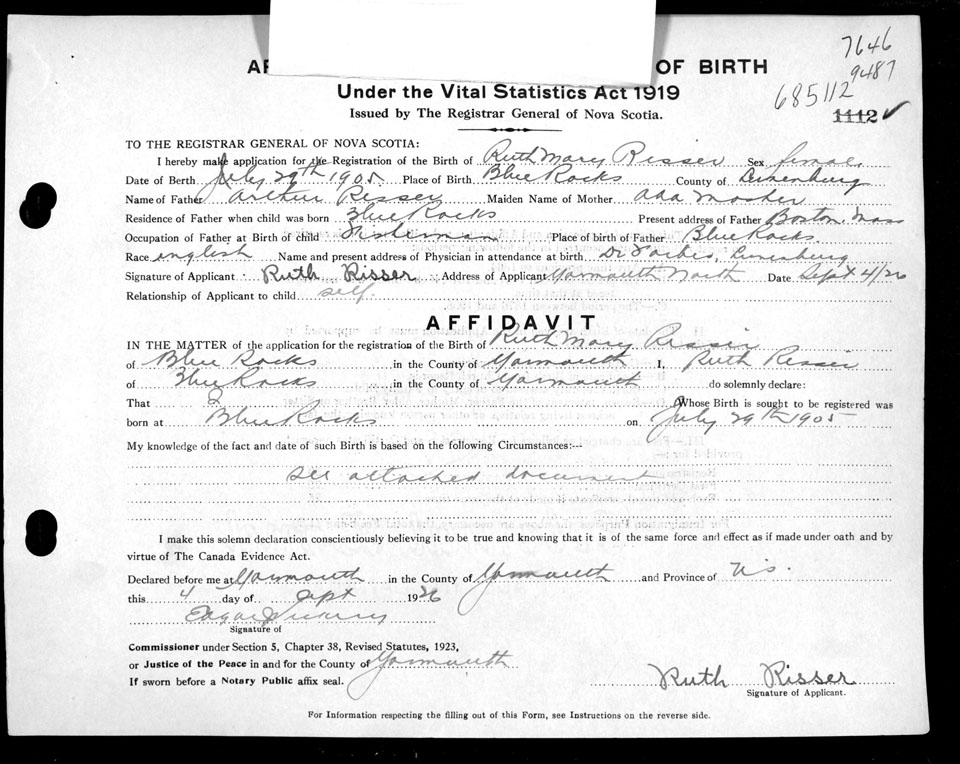 7646
9487
685112
1112 ✓
OF BIRTH
Under the Vital Statistics Act 1919
Issued by The Registrar General of Nova Scotia.
TO THE REGISTRAR GENERAL OF NOVA SCOTIA:
I hereby make application for the Registration of the Birth of Ruth Mary Risser Sex female
Date of Berth July 29th 1905. Place of Birth Blue Rocks County of Lunenburg
Name of Father Arthur Risser Maiden Name of Mother Ada Mosher
Residence of Father when child was born Blue Rocks Present address of Father Boston Mass
Occupation of Father at Birth of child Fisherman Place of birth of Father Blue Rocks.
Race english Name and present address of Physician in attendance at birth. Dr Forbes, Lunenburg
Signature of Applicant Ruth Risser Address of Applicant Yarmouth North Date Sept 4/26
Relationship of Applicant to child self.
AFFIDAVIT
IN THE MATTER of the application for the registration of the Birth of Ruth Mary Risser
of Blue Rocks in the County of Yarmouth I, Ruth Risser
of Blue Rocks in the County of Yarmouth do solemnly declare:
That I Whose Birth is sought to be registered was
born at Blue Rocks on July 29th 1905
My knowledge of the fact and date of such Birth is based on the following Circumstances:—
see attached document
I make this solemn declaration conscientiously believing it to be true and knowing that it is of the same force and effect as if made under oath and by
virtue of The Canada Evidence Act.
Declared before me at Yarmouth in the County of Yarmouth and Province of N.S.
this 4 day of Sept 1926
Edgar
Signature of
Commissioner under Section 5, Chapter 38, Revised Statutes, 1923,
or Justice of the Peace in and for the County of Yarmouth
If sworn before a Notary Public affix seal.
Ruth Risser
Signature of Applicant.
For Information respecting the filling out of this Form, see Instructions on the reverse side.